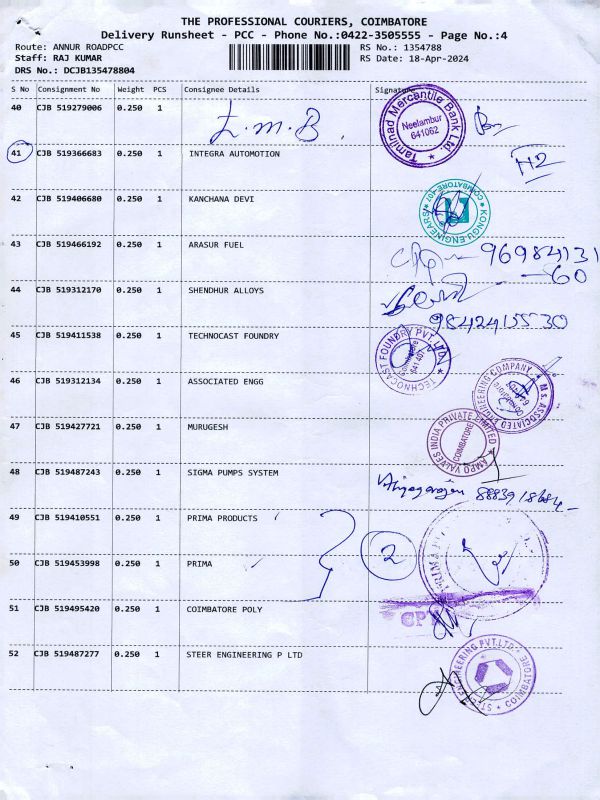 THE PROFESSIONAL COURIERS, COIMBATORE
Delivery Runsheet - PCC - Phone No.:0422-3505555 - Page No.:4
Route: ANNUR ROADPCC RS No.: 1354788
Staff: RAJ KUMAR RS Date: 18-Apr-2024
DRS No.: DCJB135478804
S No Consignment No Weight PCS Consignee Details Signature
40 CJB 519279006 0.250 1 T.M.B. Tamilnad Mercantile Bank Ltd. Neelambur 641062
41 CJB 519366683 0.250 1 INTEGRA AUTOMOTION
42 CJB 519406680 0.250 1 KANCHANA DEVI KONGU ENGINEARS COIMBATORE-407
43 CJB 519466192 0.250 1 ARASUR FUEL 96984131
60
44 CJB 519312170 0.250 1 SHENDHUR ALLOYS
9842415530
45 CJB 519411538 0.250 1 TECHNOCAST FOUNDRY TECHNOCAST FOUNDRY PVT. LTD. Coimbatore 641 407
46 CJB 519312134 0.250 1 ASSOCIATED ENGG MS. ASSOCIATED ENGINEERING COMPANY
47 CJB 519427721 0.250 1 MURUGESH AMPO VALVES INDIA PRIVATE LIMITED COIMBATORE
48 CJB 519487243 0.250 1 SIGMA PUMPS SYSTEM Thiyagarajan
49 CJB 519410551 0.250 1 PRIMA PRODUCTS 2
50 CJB 519453998 0.250 1 PRIMA PRIMA
51 CJB 519495420 0.250 1 COIMBATORE POLY
52 CJB 519487277 0.250 1 STEER ENGINEERING P LTD STEER ENGINEERING PVT.LTD. COIMBATORE